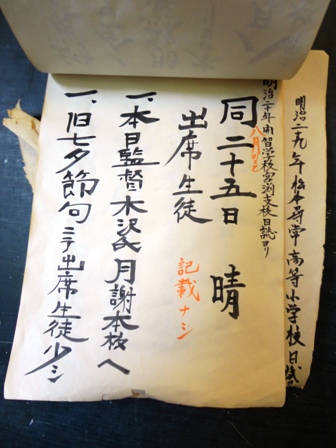 明治二九年松本尋常高等小学校日誌
明治二十年開智学校宮渕支校日誌ヨリ
八月のこと
同二十五日 晴
出席生徒 記載ナシ
一、本日監督木沢氏月謝本校へ
一、旧七夕節句ニテ出席生徒少シ